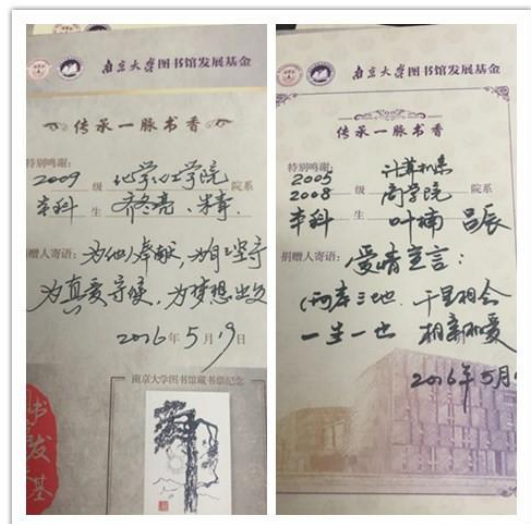 南京大学图书馆发展基金
传承一脉书香
特别鸣谢:
2009 级 化学化工学院 院系
本科 生 齐冬亮、
捐赠人寄语: 为他人奉献,为自己坚守
为真爱守候,为梦想出发
2016年5月19日
南京大学图书馆藏书票纪念
书
发
基
南京大学图书馆发展基金
传承一脉书香
特别鸣谢:
2005 计算机系
2008 级 商学院 院系
本科 生 叶楠 吕辰
捐赠人寄语: 爱情宣言:
两岸三地 千里相会
一生一世 相亲相爱
2016年5月